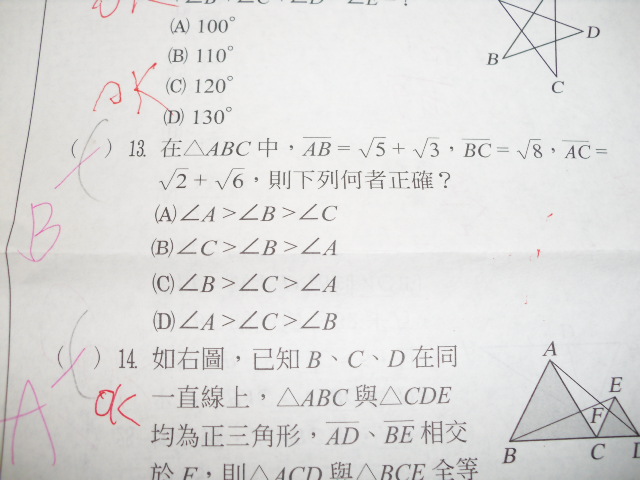 (A) 100°
(B) 110°
(C) 120°
(D) 130°
OK
B
D
C
( ) 13. 在△ABC 中，AB = √5 + √3，BC = √8，AC =
√2 + √6，則下列何者正確？
(A) ∠A > ∠B > ∠C
(B) ∠C > ∠B > ∠A
(C) ∠B > ∠C > ∠A
(D) ∠A > ∠C > ∠B
B
( ) 14. 如右圖，已知 B、C、D 在同
一直線上，△ABC 與△CDE
均為正三角形，AD、BE 相交
於 F，則△ACD 與△BCE 全等
A
OK
A
E
F
B
C